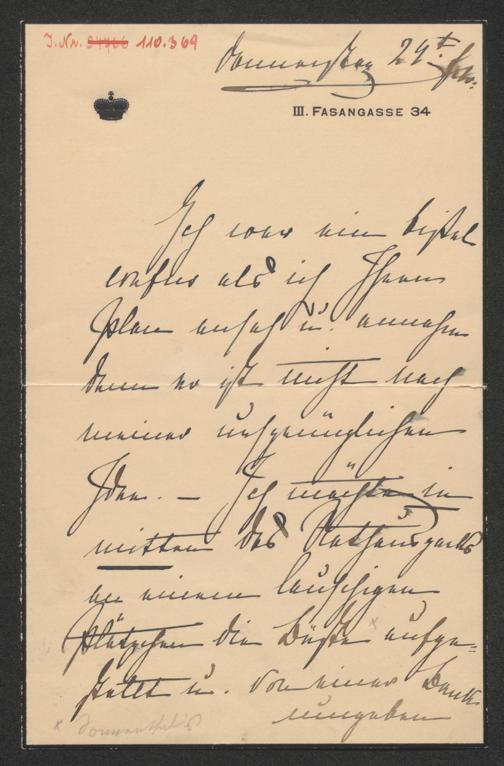 I.Nr. 94766 110.369
Donnerstag 29t
III. FASANGASSE 34
Ich war ein bissel
confus als ich Ihren
Plan ansah u. annahm
denn er ist nicht nach
meiner ursprünglichen
Idee. – Ich möchte in
mitten des Rathhausparks
an einem lauschigen
Plätzchen die Büste x aufge-
stellt u. von einer Bank
umgeben
x Sonnenthals